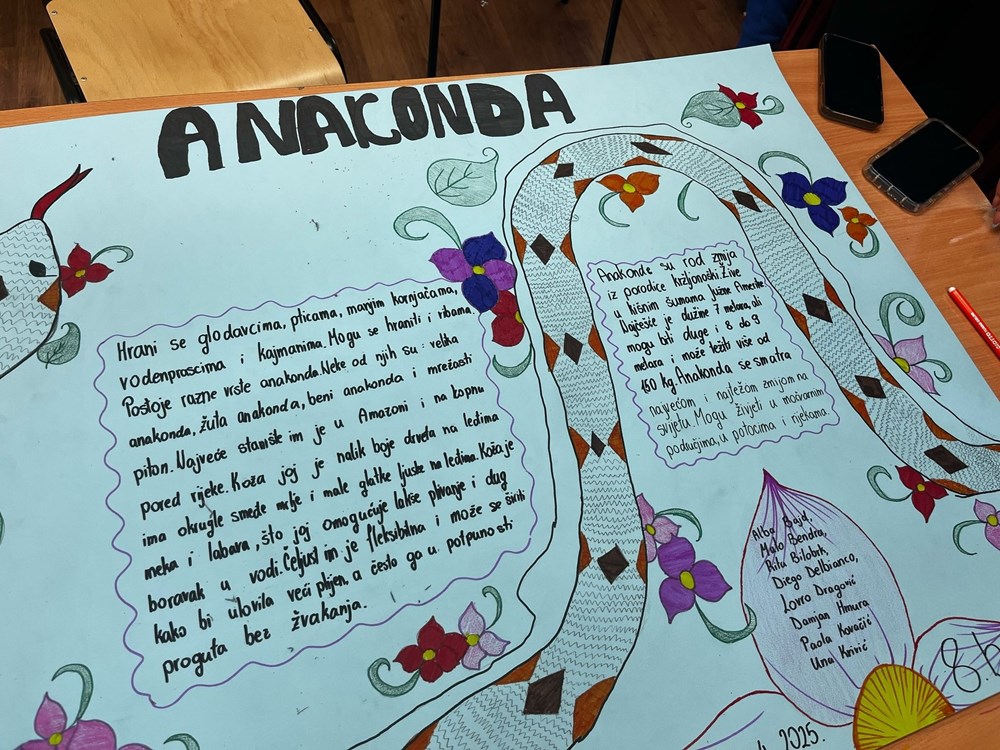 ANAKONDA
Hrani se glodavcima, pticama, manjim kornjačama,
vodenprascima i kajmanima. Mogu se hraniti i ribama.
Postoje razne vrste anakonda. Neke od njih su: velika
anakonda, žuta anakonda, beni anakonda i mrežasti
piton. Najveće stanište im je u Amazoni i na kopnu
pored rijeke. Koža joj je nalik boje drveta na leđima
ima okrugle smeđe mrlje i male glatke ljuske na leđima. Koža je
meka i labava, što joj omogućuje lakše plivanje i dug
boravak u vodi. Čeljust im je fleksibilna i može se širiti
kako bi ulovila veći plijen, a često ga u potpunosti
proguta bez žvakanja.
Anakonde su rod zmija
iz porodice kržljonoški. Žive
u kišnim šumama Južne Amerike
Najčešće je dužine 7 metara, ali
mogu biti duge i 8 do 9
metara i može težiti više od
150 kg. Anakonda se smatra
najvećom i najtežom zmijom na
svijetu. Mogu živjeti u močvarnim
područjima, u potocima i rijekama.
Alba Bajd,
Malo Bendra,
Rita Bilobrk,
Diego Delbianco,
Lovro Dragović
Damjan Hmura
Paola Kovačić
Una Krivić
8.b
2025.